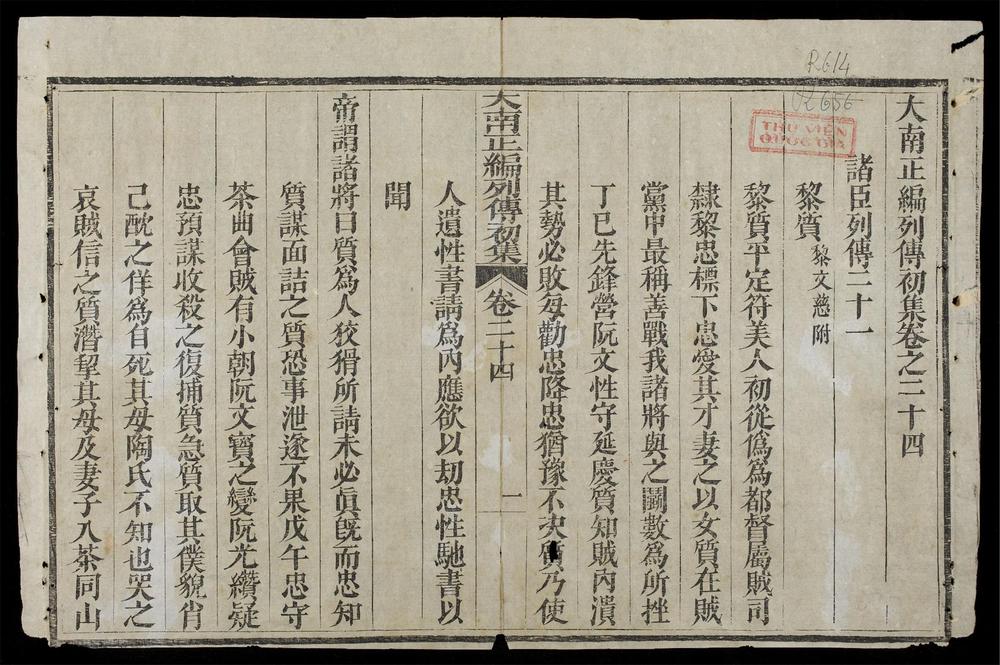 R614
R656
THƯ VIỆN
QUỐC GIA
大南正編列傳初集卷之二十四
諸臣列傳二十一
黎質 黎文慈附
黎質平定符美人初從僞爲都督屬賊司
隸黎忠標下忠愛其才妻之以女質在賊
黨中最稱善戰我諸將與之鬪數爲所挫
丁巳先鋒營阮文性守延慶質知賊內潰
其勢必敗每勸忠降忠猶豫不決質乃使
大南正編列傳初集 卷二十四 一
人遺性書請爲內應欲以刼忠性馳書以
聞
帝謂諸將曰質爲人狡猾所請未必眞旣而忠知
質謀面詰之質恐事泄遂不果戊午忠守
茶曲會賊有小朝阮文寶之變阮光纘疑
忠預謀收殺之復捕質急質取其僕貌肖
己酖之佯爲自死其母陶氏不知也哭之
哀賊信之質潛挈其母及妻子入茶同山